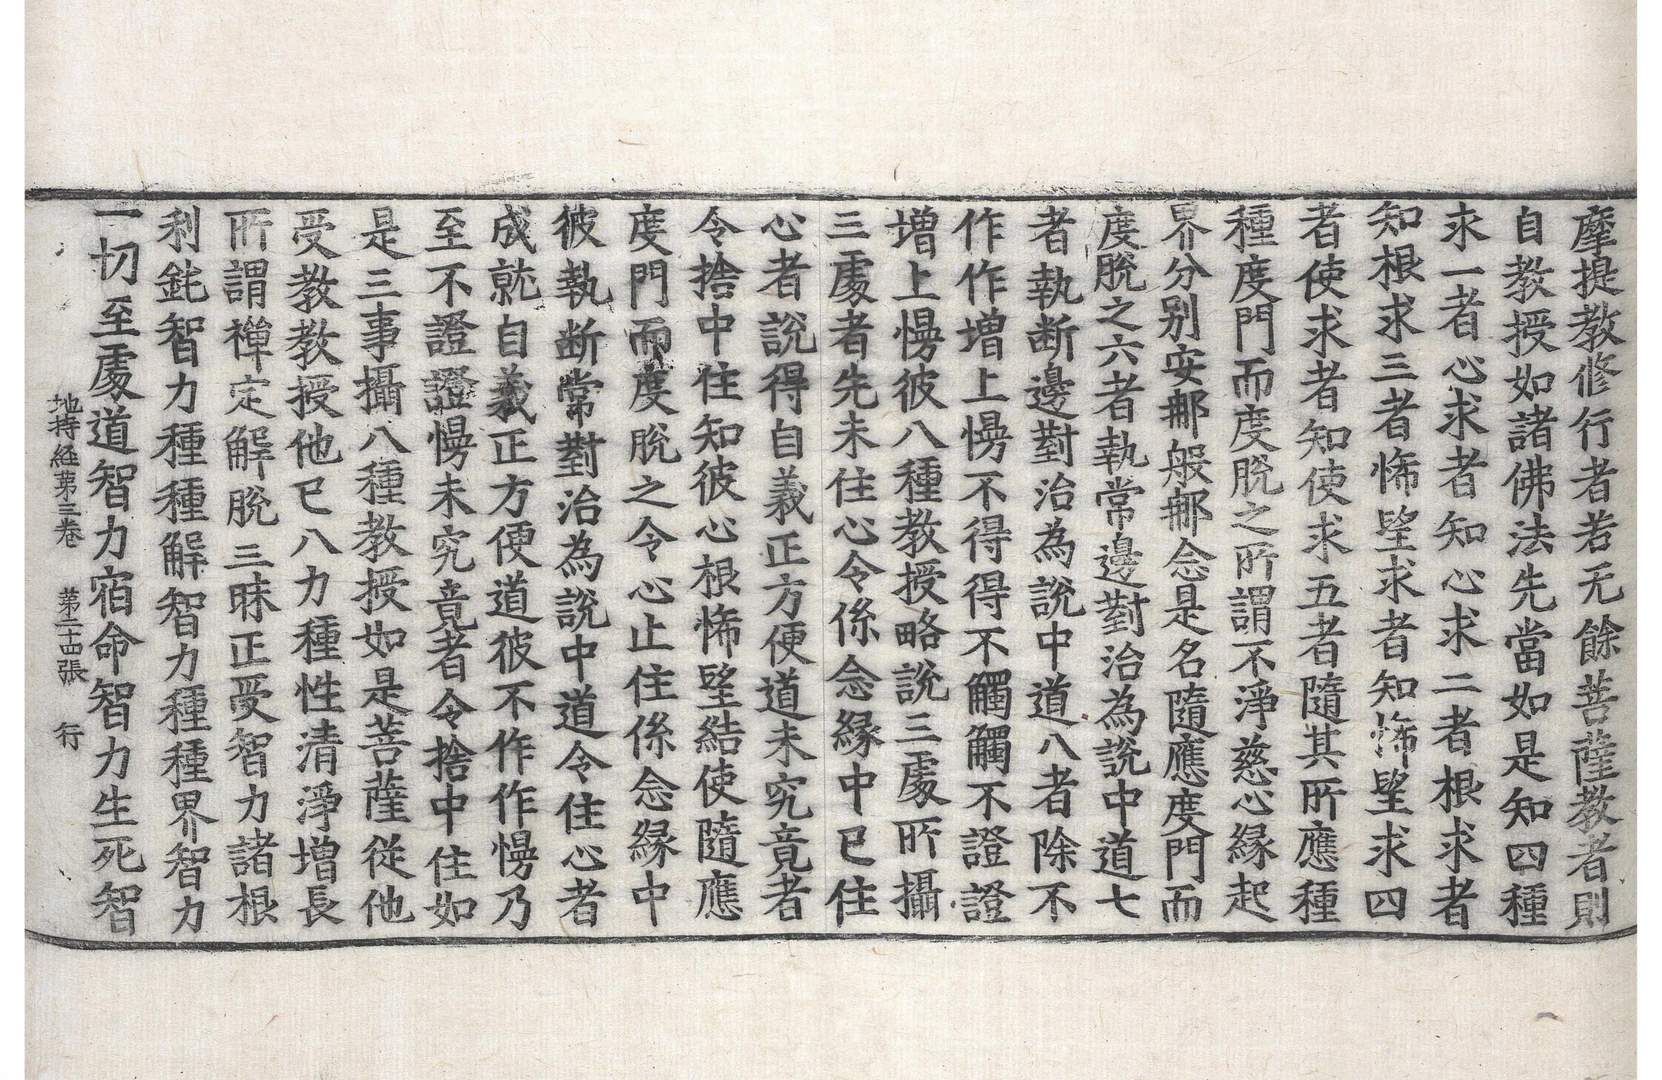 塵提教修行者若无餘菩薩教者則
自教授如諸佛法先當如是知四種
求一者心求者知心求二者根求者
知根求三者悕望求者知悕望求四
者使求者知使求五者隨其所應種
種度門而度脫之所謂不淨慈心緣起
界分别安那般那念是名隨應度門而
度脫之六者執常邊對治為說中道七
者執斷邊對治為說中道八者除不
作作增上慢不得得不觸觸不證證
增上慢彼八種教授略說三處所攝
三處者先未住心令係念緣中已住
心者說得自義正方便道未究竟者
令捨中住知彼心根悕望結使隨應
度門而度脫之令心止住係念緣中
彼執断常對治為說中道令住心者
成就自義正方便道彼不作作慢乃
至不證證慢未究竟者令捨中住如
是三事攝八種教授如是菩薩從他
受教教授他已八力種性清淨增長
所謂禪定解脫三昧正受智力諸根
利鈍智力種種解智力種種界智力
一切至處道智力宿命智力生死智
地持經第三卷 第二十四張 行